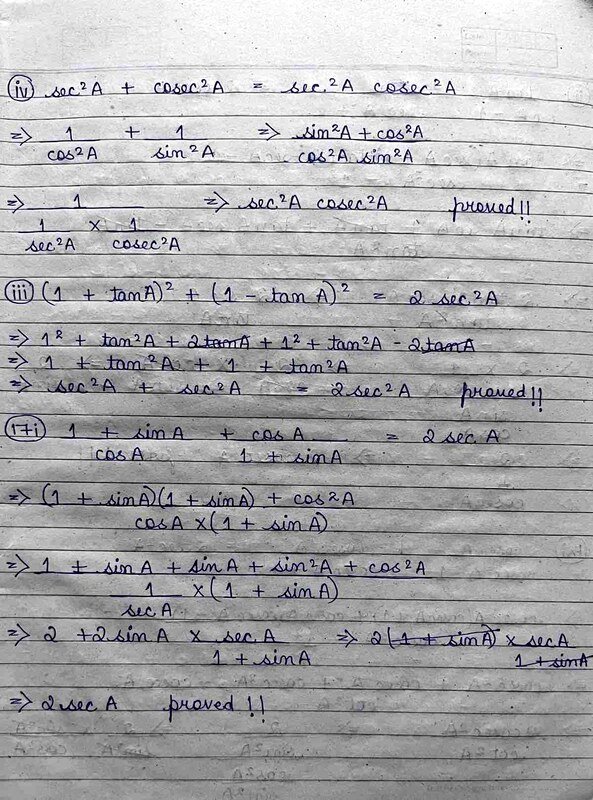 (iv) sec²A + cosec²A = sec.²A cosec²A
⇒ 1/cos²A + 1/sin²A ⇒ (sin²A + cos²A)/(cos²A sin²A)
⇒ 1/(1/sec²A × 1/cosec²A) ⇒ sec²A cosec²A proved!!
(iii) (1 + tanA)² + (1 - tan A)² = 2 sec²A
⇒ 1² + tan²A + 2tanA + 1² + tan²A - 2tanA
⇒ 1 + tan²A + 1 + tan²A
⇒ sec²A + sec²A = 2sec²A proved!!
(17i) (1 + sinA)/cosA + cosA/(1 + sinA) = 2 sec A
⇒ ((1 + sinA)(1 + sinA) + cos²A)/(cosA ×(1 + sinA))
⇒ (1 + sinA + sinA + sin²A + cos²A)/(1/secA ×(1 + sinA))
⇒ 2 + 2sinA × secA/(1 + sinA) ⇒ 2(1 + sinA) × secA/(1 + sinA)
⇒ 2secA proved!!